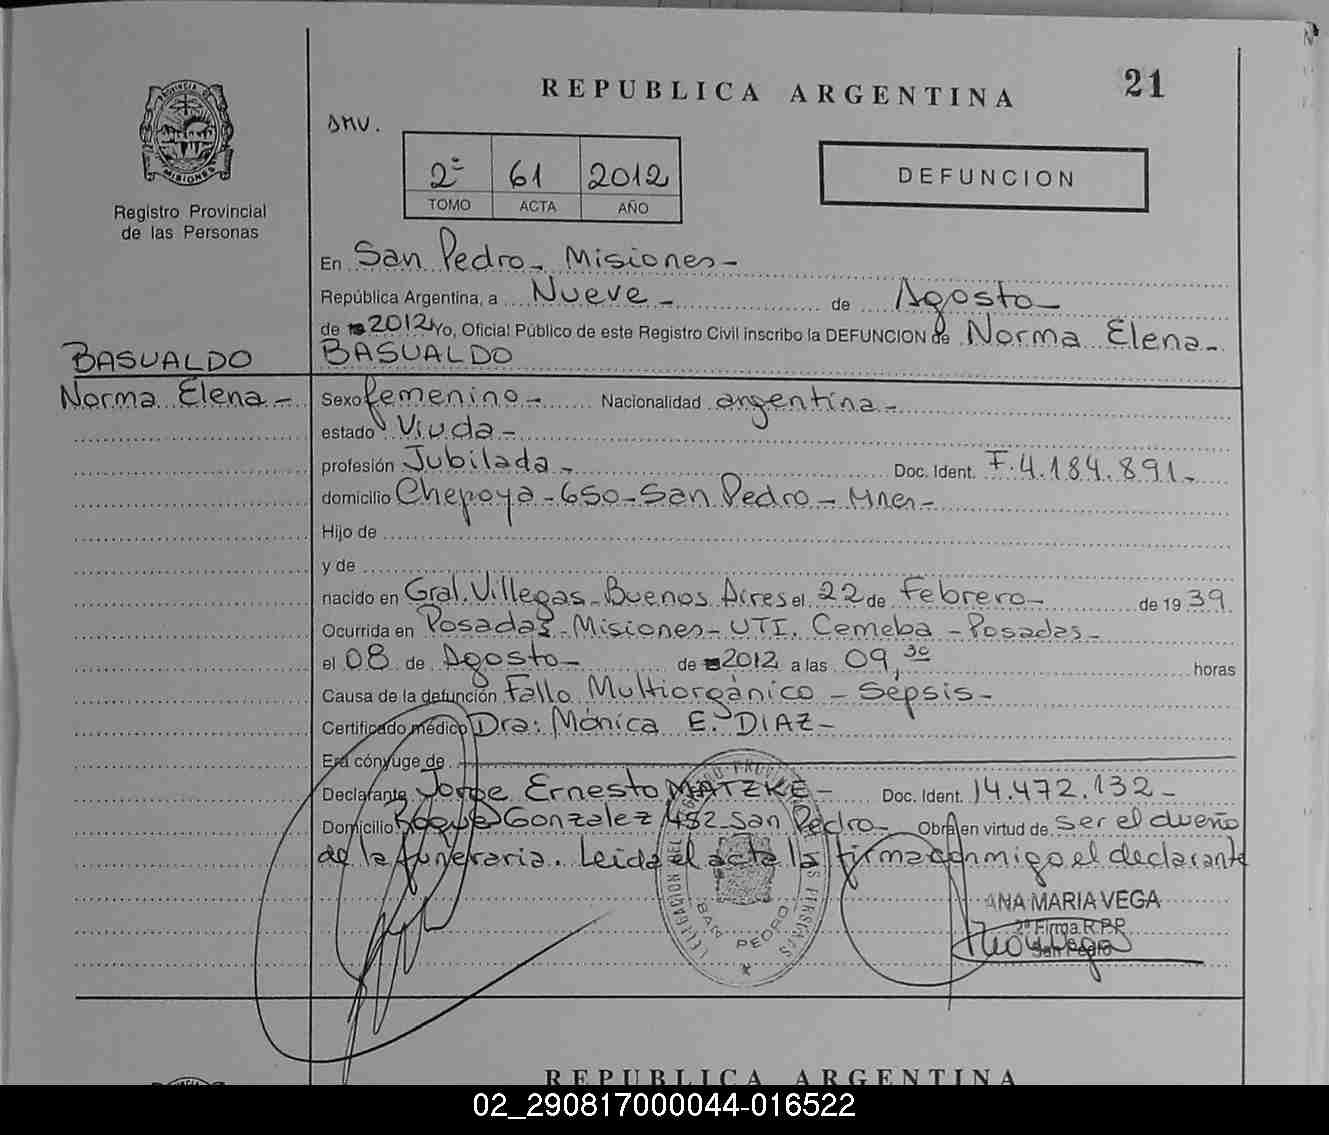 REPUBLICA ARGENTINA
21
PROVINCIA DE MISIONES
Registro Provincial
de las Personas
2ª 61 2012
TOMO ACTA AÑO
DEFUNCION
En San Pedro - Misiones -
República Argentina, a Nueve - de Agosto -
de 2012 Yo, Oficial Público de este Registro Civil inscribo la DEFUNCION de Norma Elena -
BASUALDO
BASUALDO
Norma Elena -
Sexo femenino - Nacionalidad argentina -
estado Viuda -
profesión Jubilada - Doc. Ident. F. 4.184.891 -
domicilio Chepoya - 650 - San Pedro - Mnes -
Hijo de
y de
nacido en Gral. Villegas - Buenos Aires el 22 de Febrero - de 19 39
Ocurrida en Posadas - Misiones - UTI. Cemeba - Posadas -
el 08 de Agosto - de 2012 a las 09,30 horas
Causa de la defunción Fallo Multiorgánico - Sepsis -
Certificado médico Dra: Mónica E. DIAZ -
Era cónyuge de
Declarante Jorge Ernesto MATZKE - Doc. Ident. 14.472.132 -
Domicilio Roque Gonzalez 482 San Pedro - Obra en virtud de ser el dueño
de la funeraria. Leida el acta la firma conmigo el declarante
SAN PEDRO
ANA MARIA VEGA
2ª Firma R.P.P.
San Pedro
REPUBLICA ARGENTINA
02_290817000044-016522